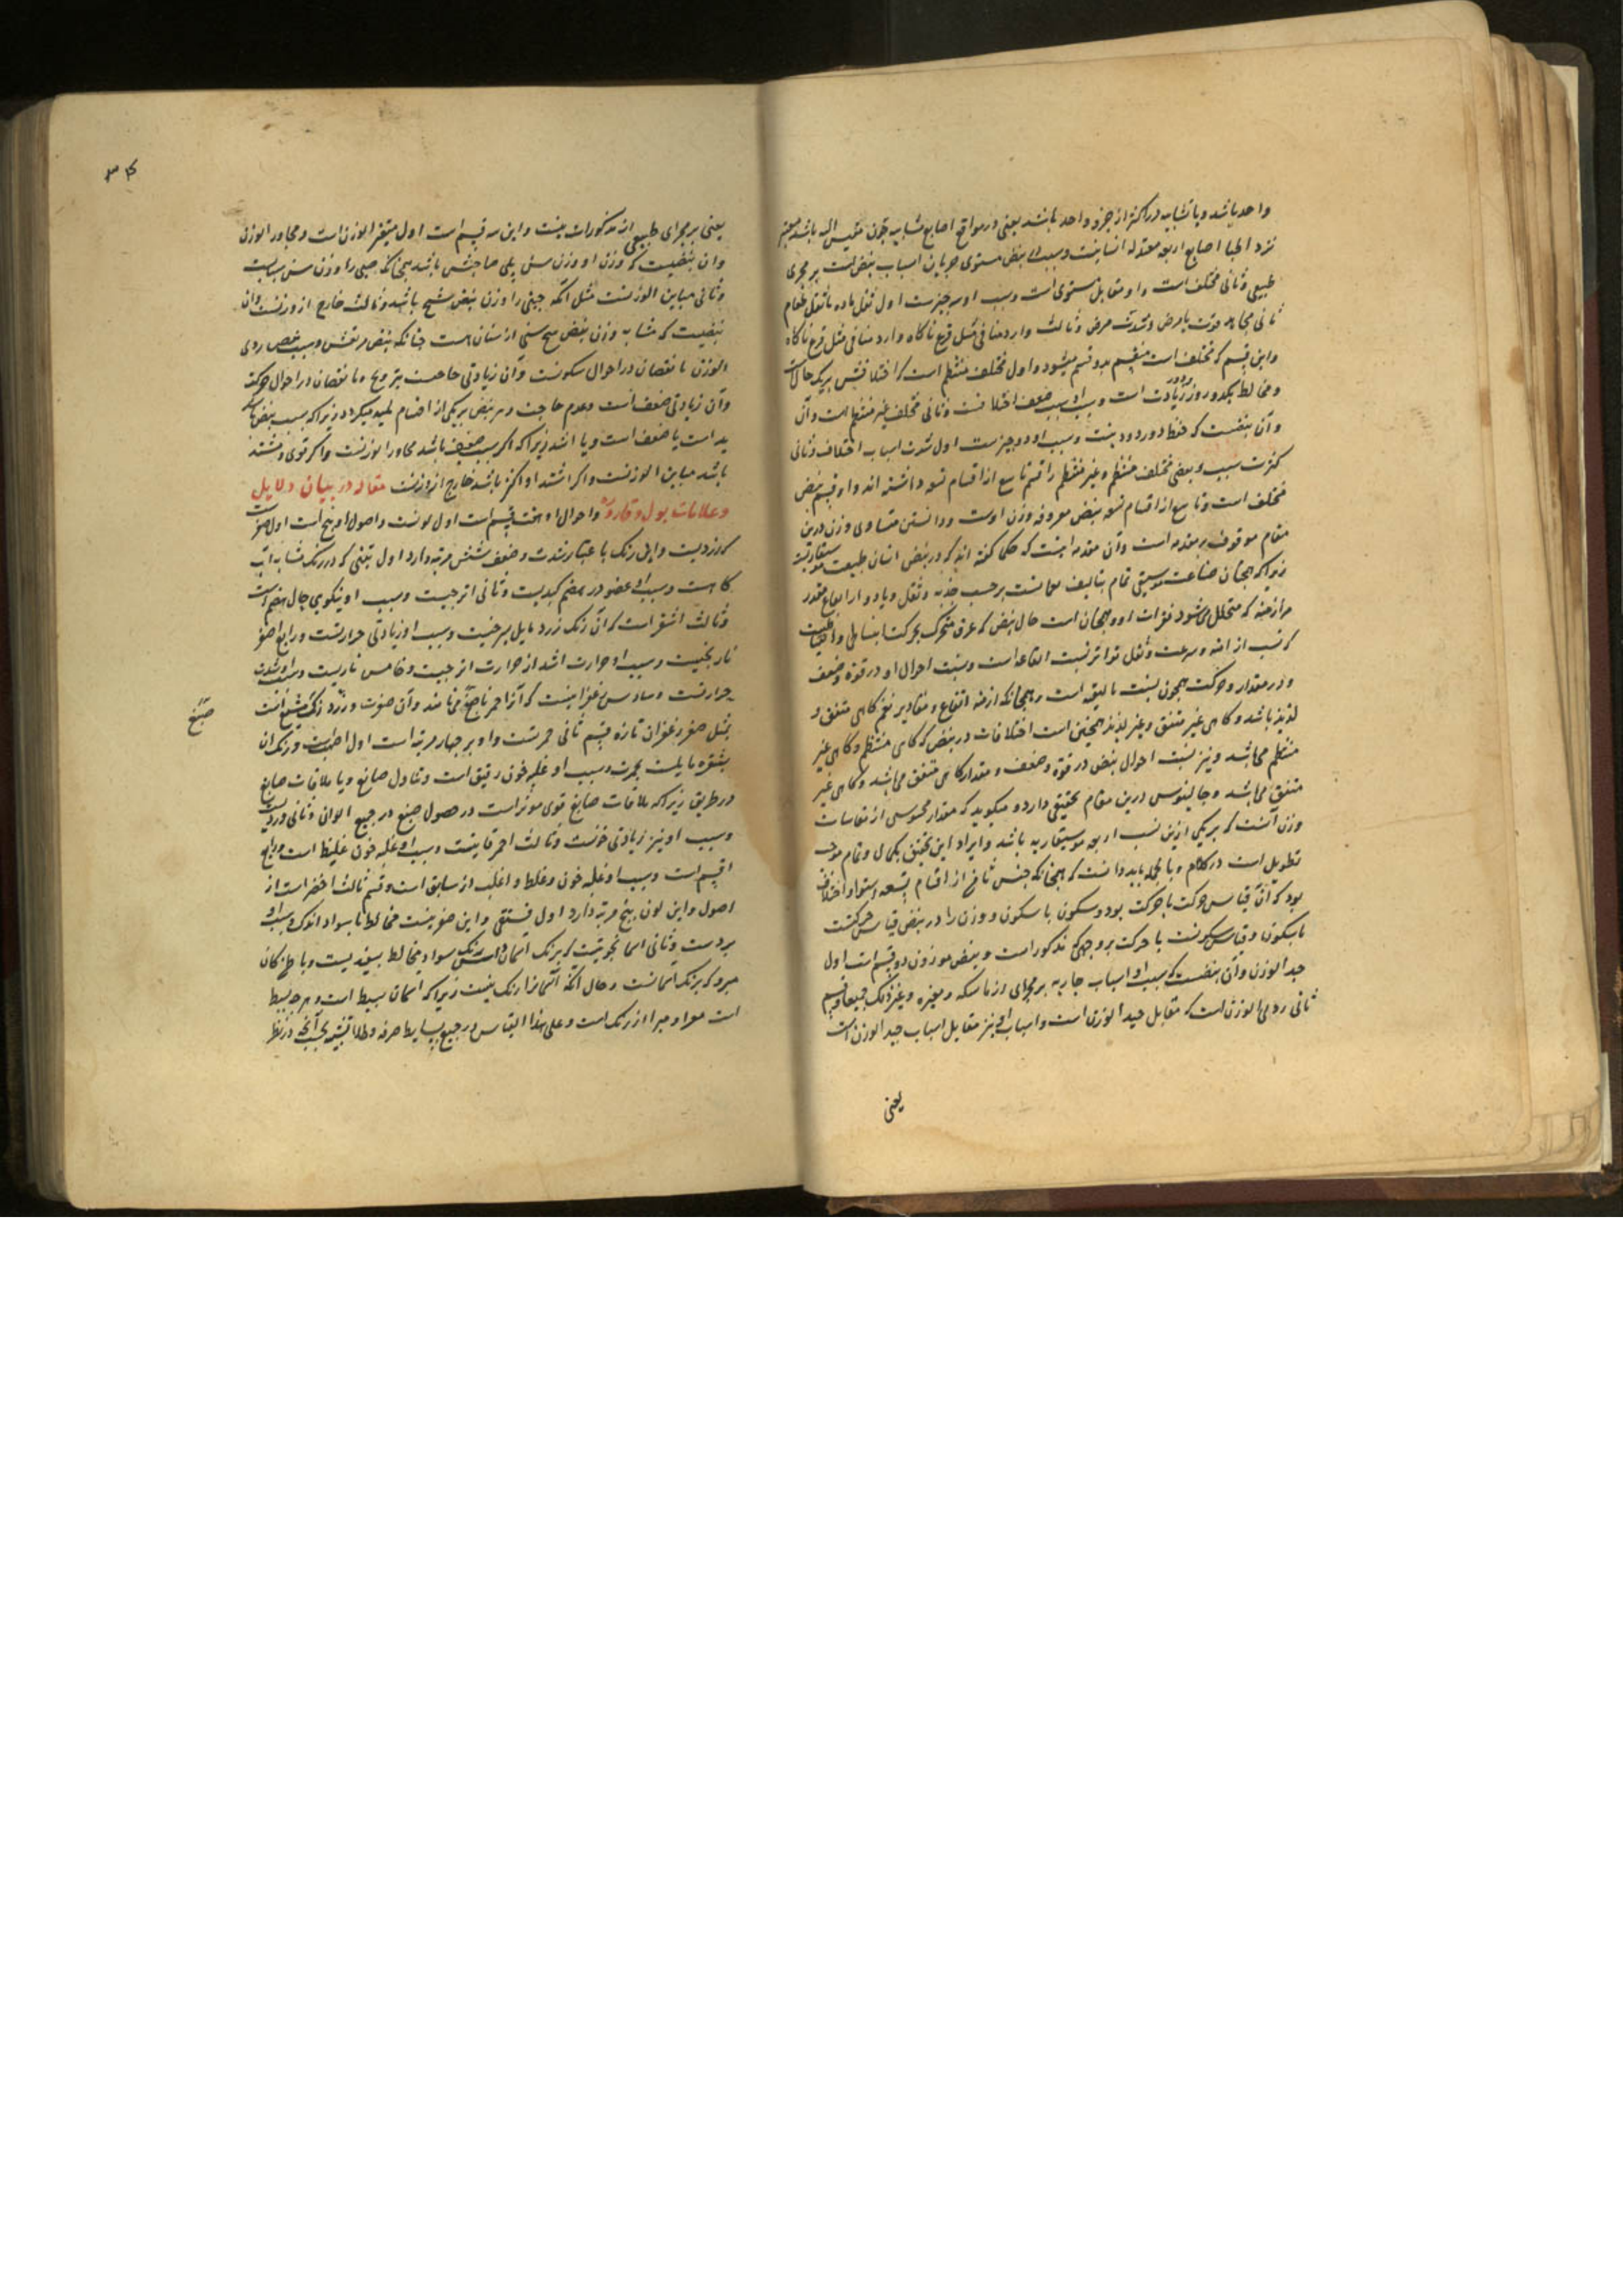 واحد باشد و یا تشابه در اکثر از جزو واحد باشد یعنی در مواقع اصابع مشابه چون مقیس الیه باشد معتبر
نزد اطبا اصابع اربعه معتدله انسانیت و سبب او نبض مستوی جریان اسباب نبض است بر مجری
طبیعی و ثانی مختلف است و او مقابل مستوی است و سبب او سه چیزست اول ثقل ماده یا ثقل طعام
ثانی مجاهده قوت با مرض و شدت مرض و ثالث وارد منافی مثل فزع ناکاه
و این قسم که مختلف است منقسم بدو قسم میشود و اول مختلف منتظم است که اختلافش بر یک حالت
و مخالط یکدو روز زیادت است و سبب او سبب ضعف اختلافست و ثانی مختلف غیر منتظم است و آن
و آن نبضیست که حفظ دور دور نیست و سبب او دو چیزست اول شدت اسباب اختلاف و ثانی
کثرت سبب و بعضی مختلف منتظم و غیر منتظم را قسم تاسع از اقسام تسعه داشته اند و او قسیم نبض
مختلف است و تاسع از اقسام تسعه نبض معروفه وزن اوست و دانستن متساوی وزن درین
مقام موقوف بر مقدمه است و آن مقدمه اینست که حکما گفته اند که در نبض انسان طبیعت موسیقاریه
زیرا که همچنان صناعت موسیقی تمام بتالیف نغماتست بر حسب حده و ثقل و بادوار ایقاع مقدر
مر ازمنه که متخلل میشود نقرات او و همچنان است حال نبض که عرق متحرک بحرکت انبساطی و انقباضیت
که نسب ازمنه و سرعت و ثقل تواتر نسبت ایقاعه است و نسبت احوال او در قوة و ضعف
و در مقدار و حرکت همچون نسبت تالیفه است و همچنانکه ازمنه ایقاع و مقادیر نغم کاهی متفق و
لذیذ باشد و کاهی غیر متفق و غیر لذیذ همچنین است اختلافات در نبض که کاهی منتظم و کاهی غیر
منتظم می باشد و نیز نسبت احوال نبض در قوة و ضعف و مقدار کاهی متفق می باشد و کاهی غیر
متفق می باشد و جالینوس درین مقام تحقیقی دارد و میکوید که مقدار محسوس از مناسبات
وزن آنست که بر یکی ازین نسب اربعه موسیقاریه باشد و ایراد این تحقیق بکمال و تمام موجب
تطویل است در کلام و بالجمله باید دانست که همچنانکه جنس ثامن از اقسام تسعه استوا و اختلاف
بود که آن قیاس حرکت با حرکت بود و سکون با سکون و وزن را در نبض قیاس حرکتست
با سکون و قیاس سکونست با حرکت بر وجهی که مذکور است و نبض موزون دو قسم است اول
جید الوزن و آن نبضیست که سبب او اسباب جاریه بر مجرای از ماسکه و مغیره و غیر ذلک جمیعا و قسم
ثانی ردی الوزن است که مقابل جید الوزن است و اسباب او نیز مقابل اسباب جید الوزن است
یعنی
یعنی بر مجرای طبیعی از مذکورات نیست و این سه قسم است اول متغیر الوزن است و مجاور الوزن
و ان نبضیست که وزن او وزن سن یلی صاحبش باشد همچنانکه صبی را وزن سن شباب
و ثانی مباین الوزنست مثل آنکه صبی را وزن نبض شیخ باشد و ثالث خارج از وزنست و ان
نبضیست که مشابه وزن نبض هیچ سنی از اسنان نیست چنانکه نبض مرتعش و سبب نبض ردی
الوزن یا نقصان در احوال سکونست و آن زیادتی حاجت بترویح و یا نقصان در احوال حرکت
و آن زیادتی ضعف است و عدم حاجت و هر نبض بر یکی از اقسام میکردد زیرا که سبب نبض
ید است یا ضعف است و یا اشد زیرا که اگر سبب ضعیف باشد مجاور الوزنست و اگر قوی و مشتد
باشد مباین الوزنست و اگر اشتد او اکثر باشد خارج از وزنست مقاله در بیان دلایل
و علامات بول و قاروره و احوال او هفت قسم است اول لونست و اصول او پنج است اول اصفر
که زردیست و این رنک با عتبار شدت و ضعف شش مرتبه دارد اول تبنی که در رنک مشابه آب
کاهست و سبب او عضو در هضم کبدیست و ثانی اترجیست و سبب او نیکویی حال هضم است
و ثالث اشقر است که آن رنک زرد مایل بسرخیست و سبب او زیادتی حرارتست و رابع اصفر
نارنجیست و سبب او حرارت اشد از حرارت اترجیست و خامس ناریست و سبب او شدت
حرارتست و سادس زعفرانیست که آنرا احمر ناصع می نامند و آن صفرت و زرد رنک مشبع است
صبغ
مثل صفرت زعفران تازه قسم ثانی حمرتست و او بر چهار مرتبه است اول اصهب است و رنک ان
بشقره مایلست بحمرت و سبب او غلبه خون رقیق است و تناول صابغ و یا ملاقات صابغ
در طریق زیرا که ملاقات صابغ قوی موثر است در حصول صبغ در جمیع الوان و ثانی وردیست
و سبب او نیز زیادتی خونست و ثالث احمر قانیست و سبب او غلبه خون غلیظ است و رابع
اقتم است و سبب او غلبه خون و غلظ و اغلب از سابق است و قسم ثالث اخضر است از
اصول و این لون پنج مرتبه دارد اول فستقی و این صفرتست مخالط با سواد اندک و سبب او
بردست و ثانی اسمانجونیت که برنک اسمان است و این رنک سواد مخالط بسفیدیست و با ظن کان
میرود که برنک اسمانست و حال آنکه آسمانرا رنک نیست زیرا که اسمان بسیط است و هر چه بسیط
است معرا و مبرا از رنک است و علی هذا القیاس در جمیع بسایط صرفه و طلاقیه بحسب آنچه در نظر